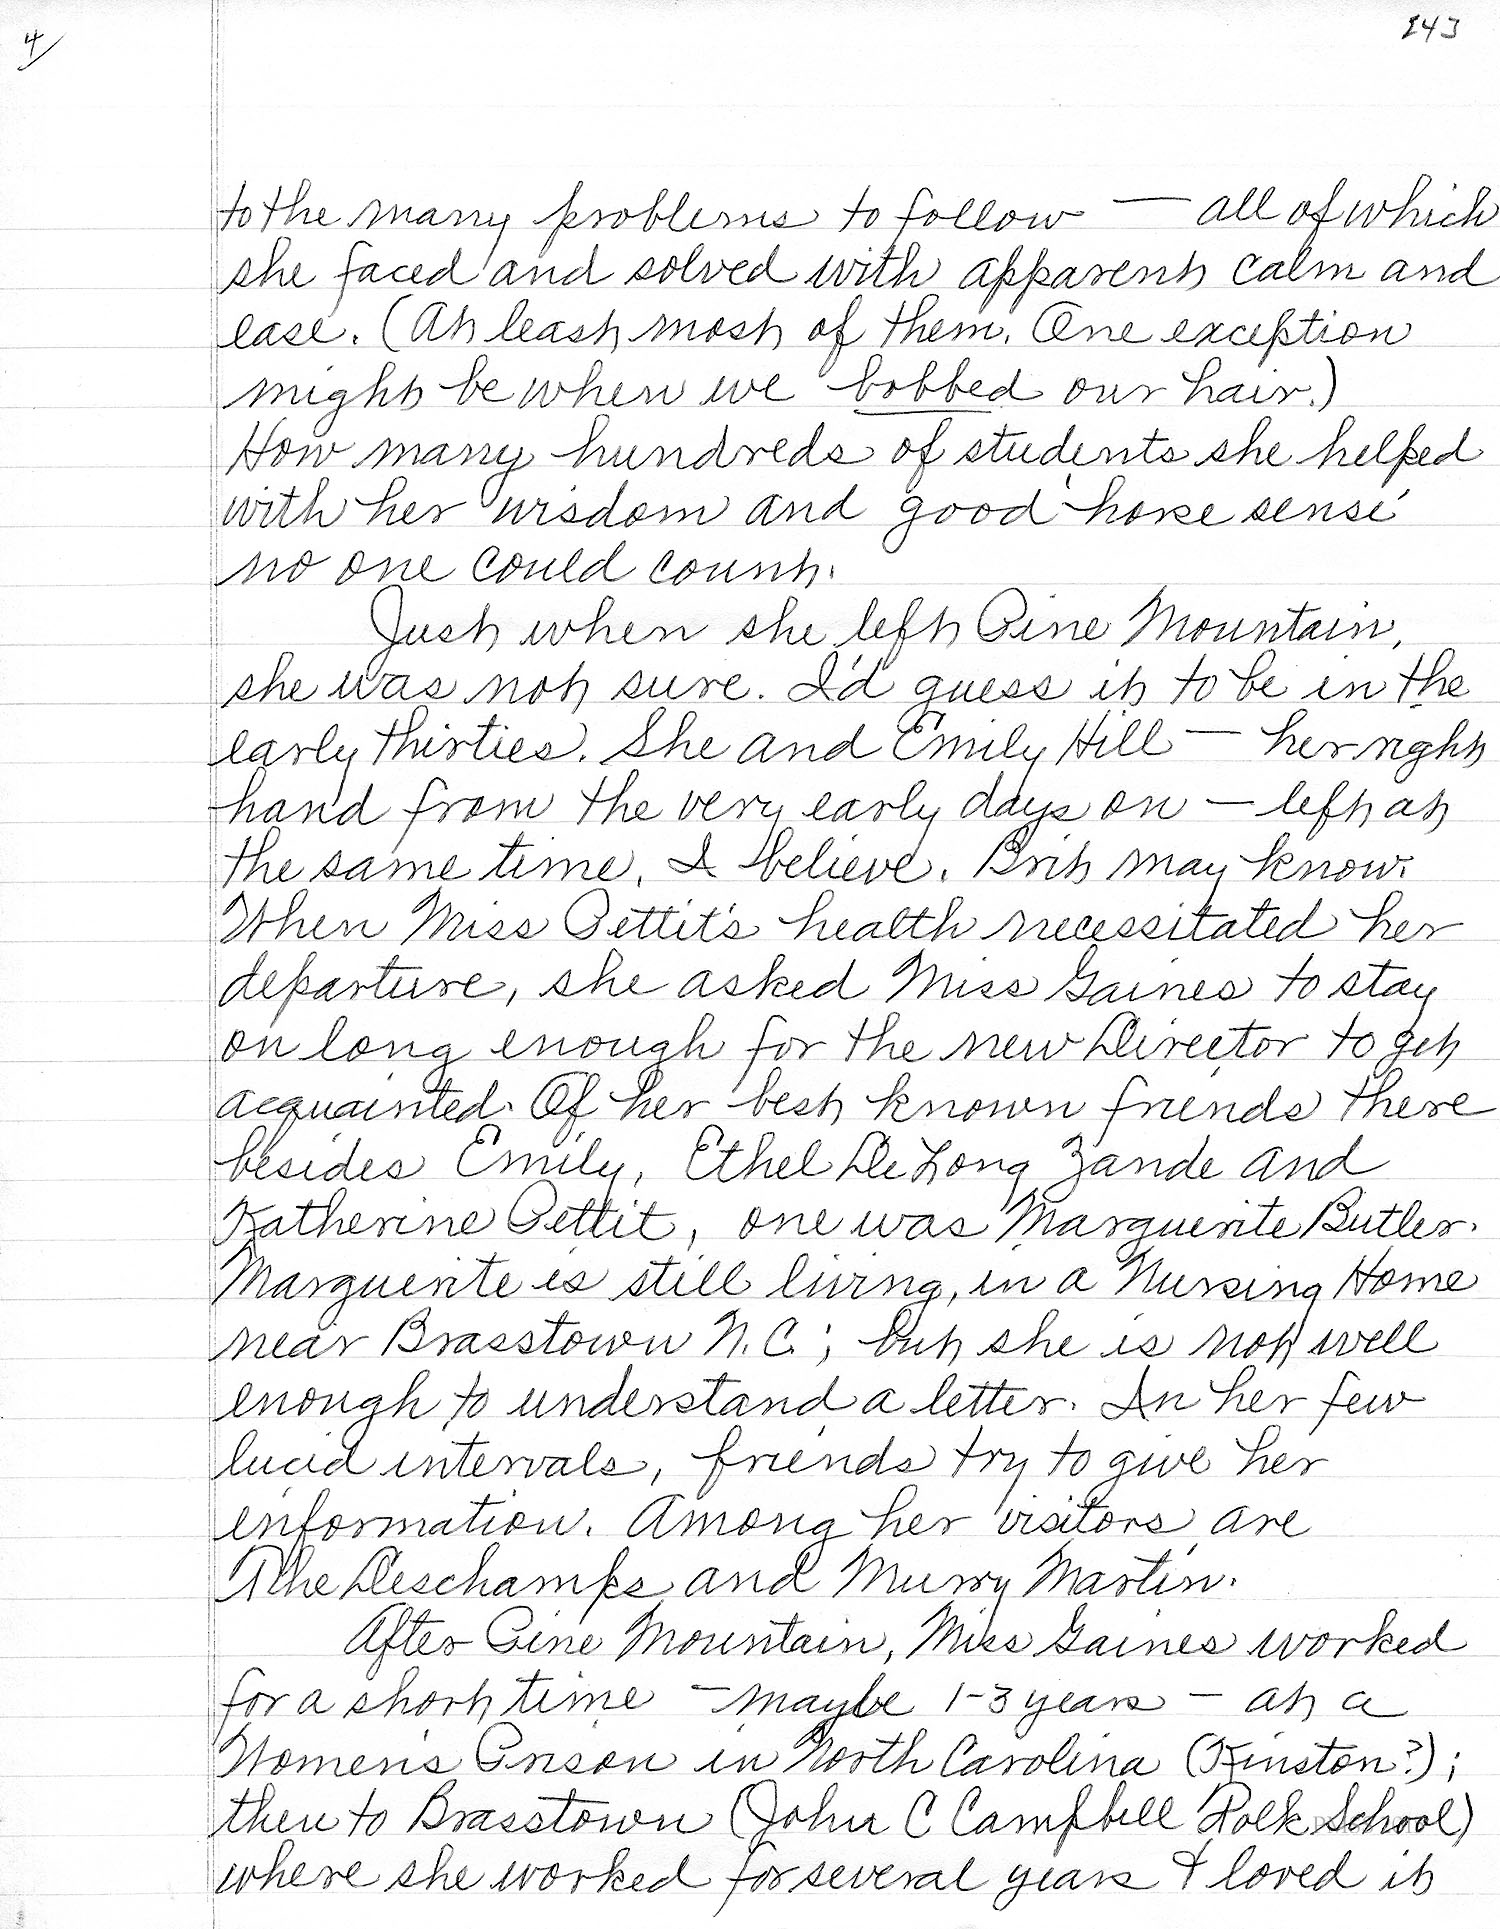 4/
243
to the many problems to follow — all of which
she faced and solved with apparent calm and
ease. (At least most of them. One exception
might be when we bobbed our hair.)
How many hundreds of students she helped
with her wisdom and good 'horse sense'
no one could count.
Just when she left Pine Mountain,
she was not sure. I'd guess it to be in the
early thirties. She and Emily Hill — her right
hand from the very early days on — left at
the same time, I believe. Brit may know.
When Miss Pettit's health necessitated her
departure, she asked Miss Gaines to stay
on long enough for the new Director to get
acquainted. Of her best known friends there
besides Emily, Ethel De Long Zande and
Katherine Pettit, one was Marguerite Butler.
Marguerite is still living, in a Nursing Home
near Brasstown N.C.; but she is not well
enough to understand a letter. In her few
lucid intervals, friends try to give her
information. Among her visitors are
The Deschamps and Murry Martin.
After Pine Mountain, Miss Gaines worked
for a short time – maybe 1-3 years – at a
Women's Prison in North Carolina (Kinston?);
then to Brasstown (John C Campbell Folk School)
where she worked for several years & loved it